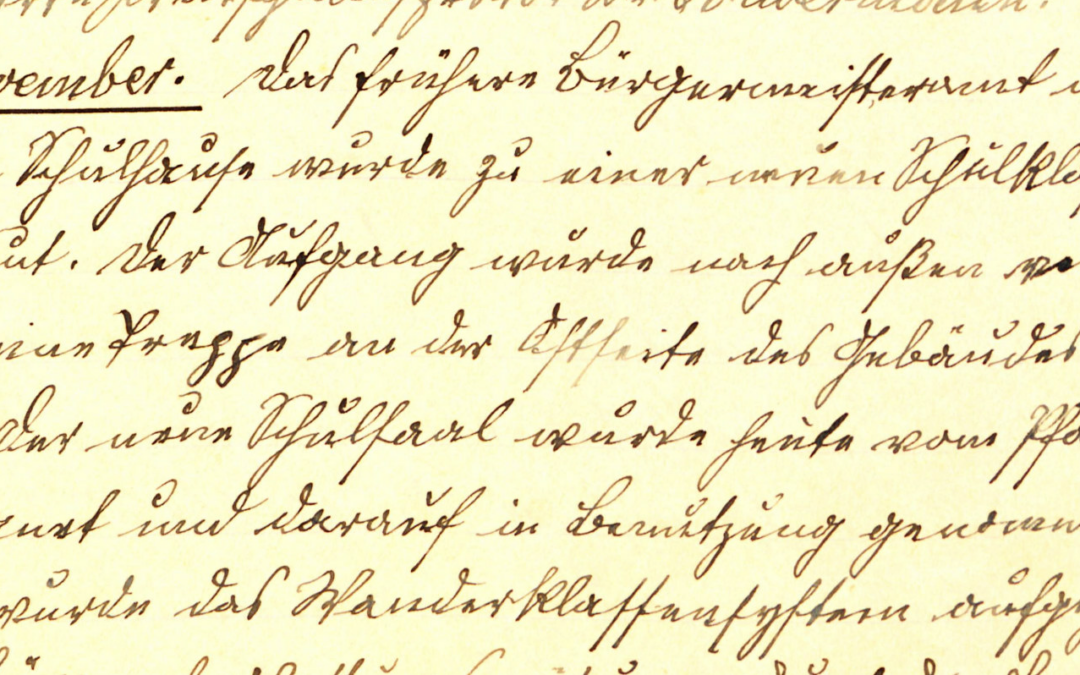 vember. Das frühere Bürgermeisteramt
Schulhause wurde zu einer neuen Schulkla
ut. Der Aufgang wurde nach außen
eine Treppe an der Ostseite des Gebäudes
Der neue Schulsaal wurde heute vom Pfa
net und darauf in Benutzung genomm
wurde das Wanderklassensystem aufge